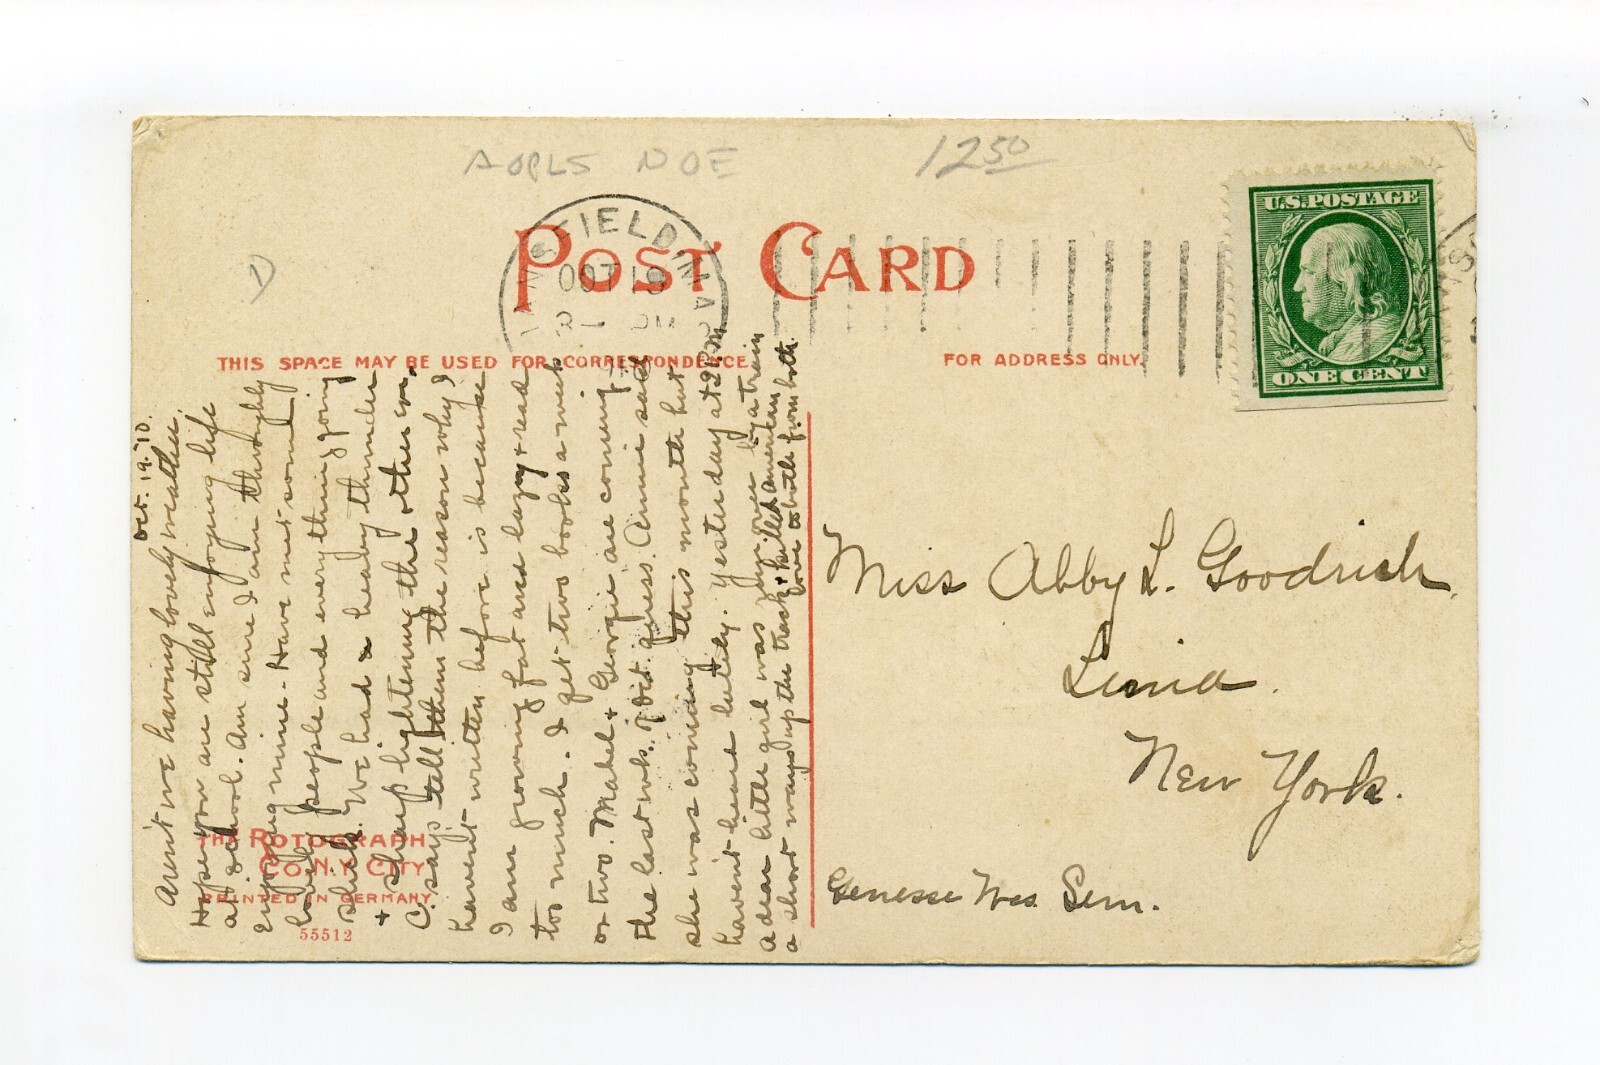 12 50
D
POST CARD
U.S. POSTAGE
ONE CENT
FIELD, MA
OCT 19
THIS SPACE MAY BE USED FOR CORRESPONDENCE
FOR ADDRESS ONLY
Oct. 19. '10.
Arent we having lovely weather.
Hope you are still enjoying life
at School. Am sure I am thoroughly
enjoying mine. Have met some
lovely people and everything going
slick. We had a heavy thunder
+ sharp lightening the other eve.
C. says tell them the reason why I
havent written before is because
I am growing fat and lazy + read
too much. I get two books a week
or two. Mabel + Georgie are coming
the last wk. of Oct. I guess. Annie said
she was coming this month but
havent heard lately. Yesterday at 2 P.M.
a dear little girl was run over by a train
a short ways up the track + killed american
Love to both from both.
THE ROTOGRAPH
CO. N.Y. CITY
PRINTED IN GERMANY
55512
Miss Abby L. Goodrich,
Lima.
New York.
Genesee Wes. Sem.